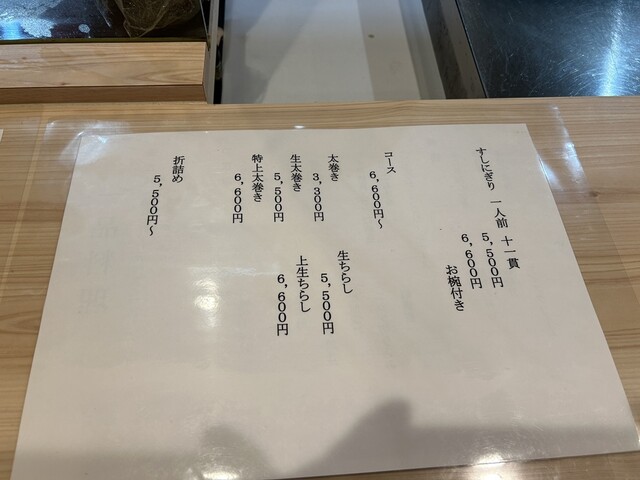 すしにぎり 一人前 十一貫
5,500円
6,600円
お椀付き
コース
6,600円～
太巻き
3,300円
生太巻き
5,500円
特上太巻き
6,600円
生ちらし
5,500円
上生ちらし
6,600円
折詰め
5,500円～